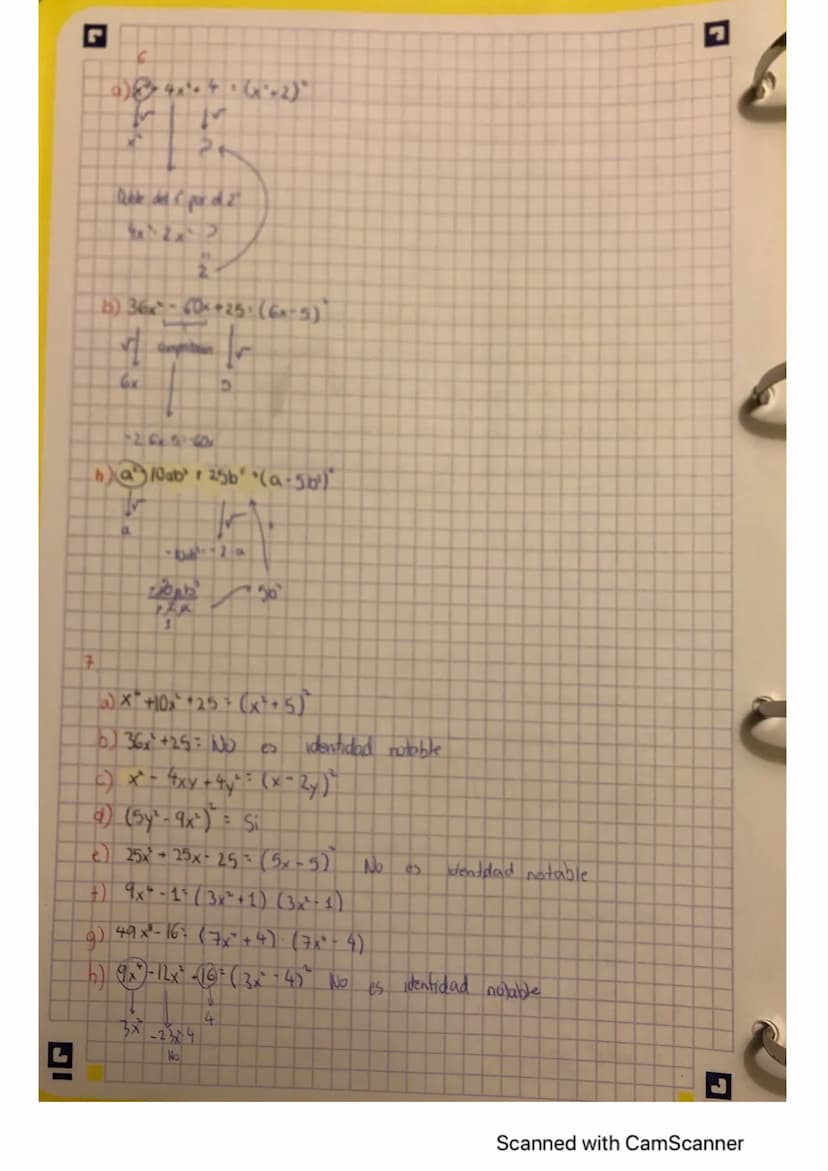 6
a) x⁴ + 4x² + 4 = (x² + 2)²
x²
2
Doble del 1º por el 2º
4x² 2x² ?
2
b) 36x² - 60x + 25 = (6x - 5)²
comprobamos
6x 5
-2·6x·5 = -60x
h) a² - 10ab³ + 25b⁶ = (a - 5b³)²
a
5b³
7.
a) x⁴ + 10x² + 25 = (x² + 5)²
b) 36x² + 25 = No es identidad notable
c) x² - 4xy + 4y² = (x - 2y)²
d) (5y² - 9x²)² = Si
e) 25x² + 25x - 25 = (5x - 5)² No es identidad notable
f) 9x⁴ - 1 = (3x² + 1) (3x² - 1)
g) 49x⁸ - 16 = (7x⁴ + 4) · (7x⁴ - 4)
h) 9x⁴ - 12x² + 16 = (3x² - 4)² No es identidad notable
3x² -2·3x²·4 4
No
Scanned with CamScanner